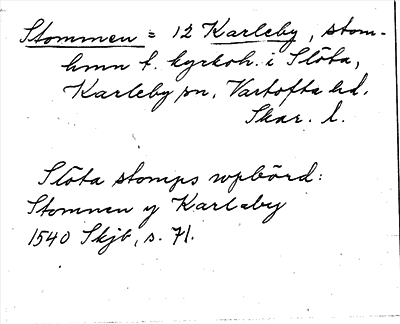 Stommen = 12 Karleby, stom-
hmn t. kyrkoh. i Slöta,
Karleby sn, Vartofta hd.
Skar. l.
Slöta stomps upbörd:
Stommen y Karlaby
1540 Skjb, s. 71.